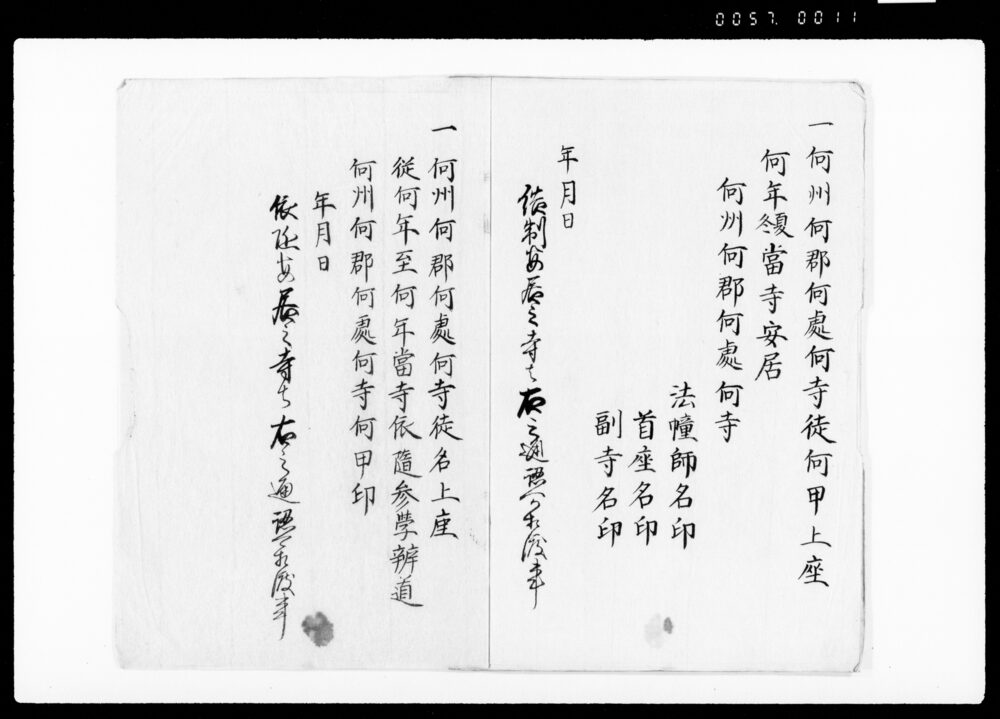 0057. 0011
一何州何郡何處何寺徒何甲上座
何年冬夏當寺安居
何州何郡何處何寺
法幢師名印
首座名印
副寺名印
年月日
結制安居之寺者右之通證
一何州何郡何處何寺徒名上座
從何年至何年當寺依隨参學辨道
何州何郡何處何寺何甲印
年月日
依随安居之寺者右之通證